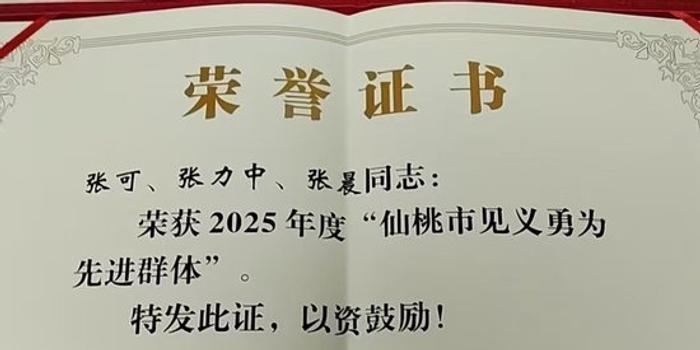 荣誉证书
张可、张力中、张晨同志：
荣获 2025 年度“仙桃市见义勇为
先进群体”。
特发此证，以资鼓励！